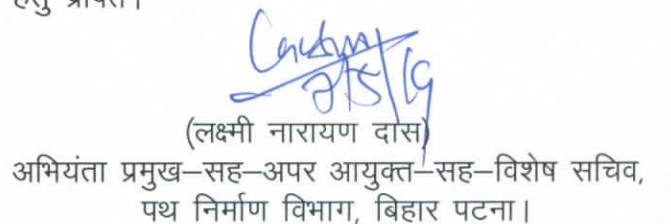 हेतु प्रेषित।
2/5/19
(लक्ष्मी नारायण दास)
अभियंता प्रमुख–सह–अपर आयुक्त–सह–विशेष सचिव,
पथ निर्माण विभाग, बिहार पटना।